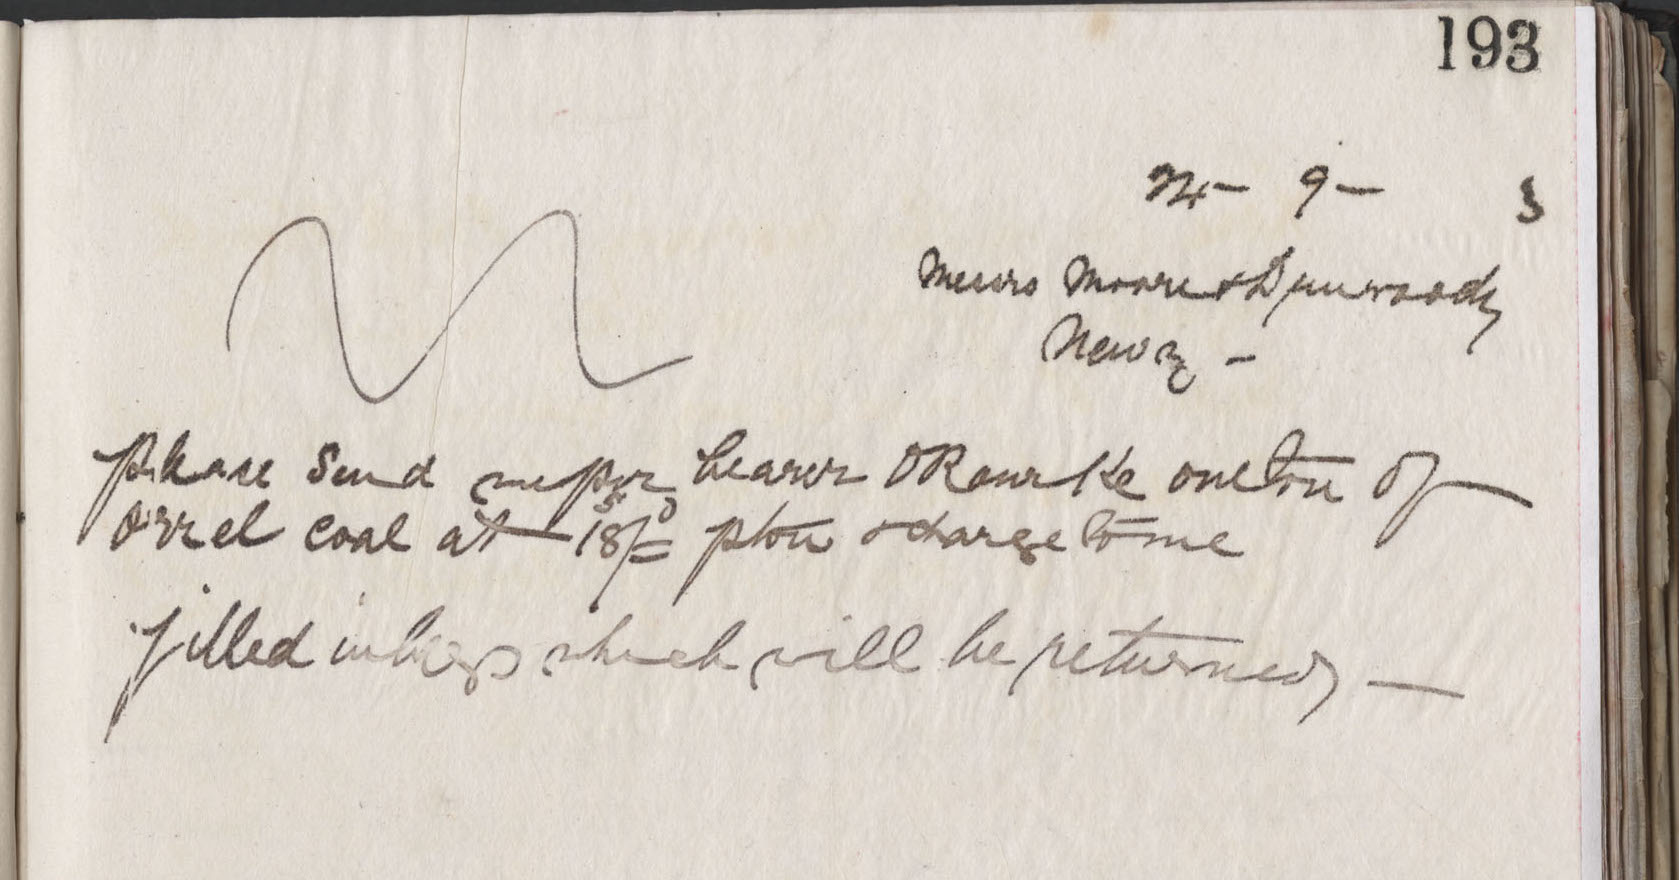 193
24 - 9 - 3
Messrs Moore & Dunwoody
Newry -
please send me per bearer ORourke one ton of
orrel coal at 18/= p ton & charge to me
filled in bags which will be returned -